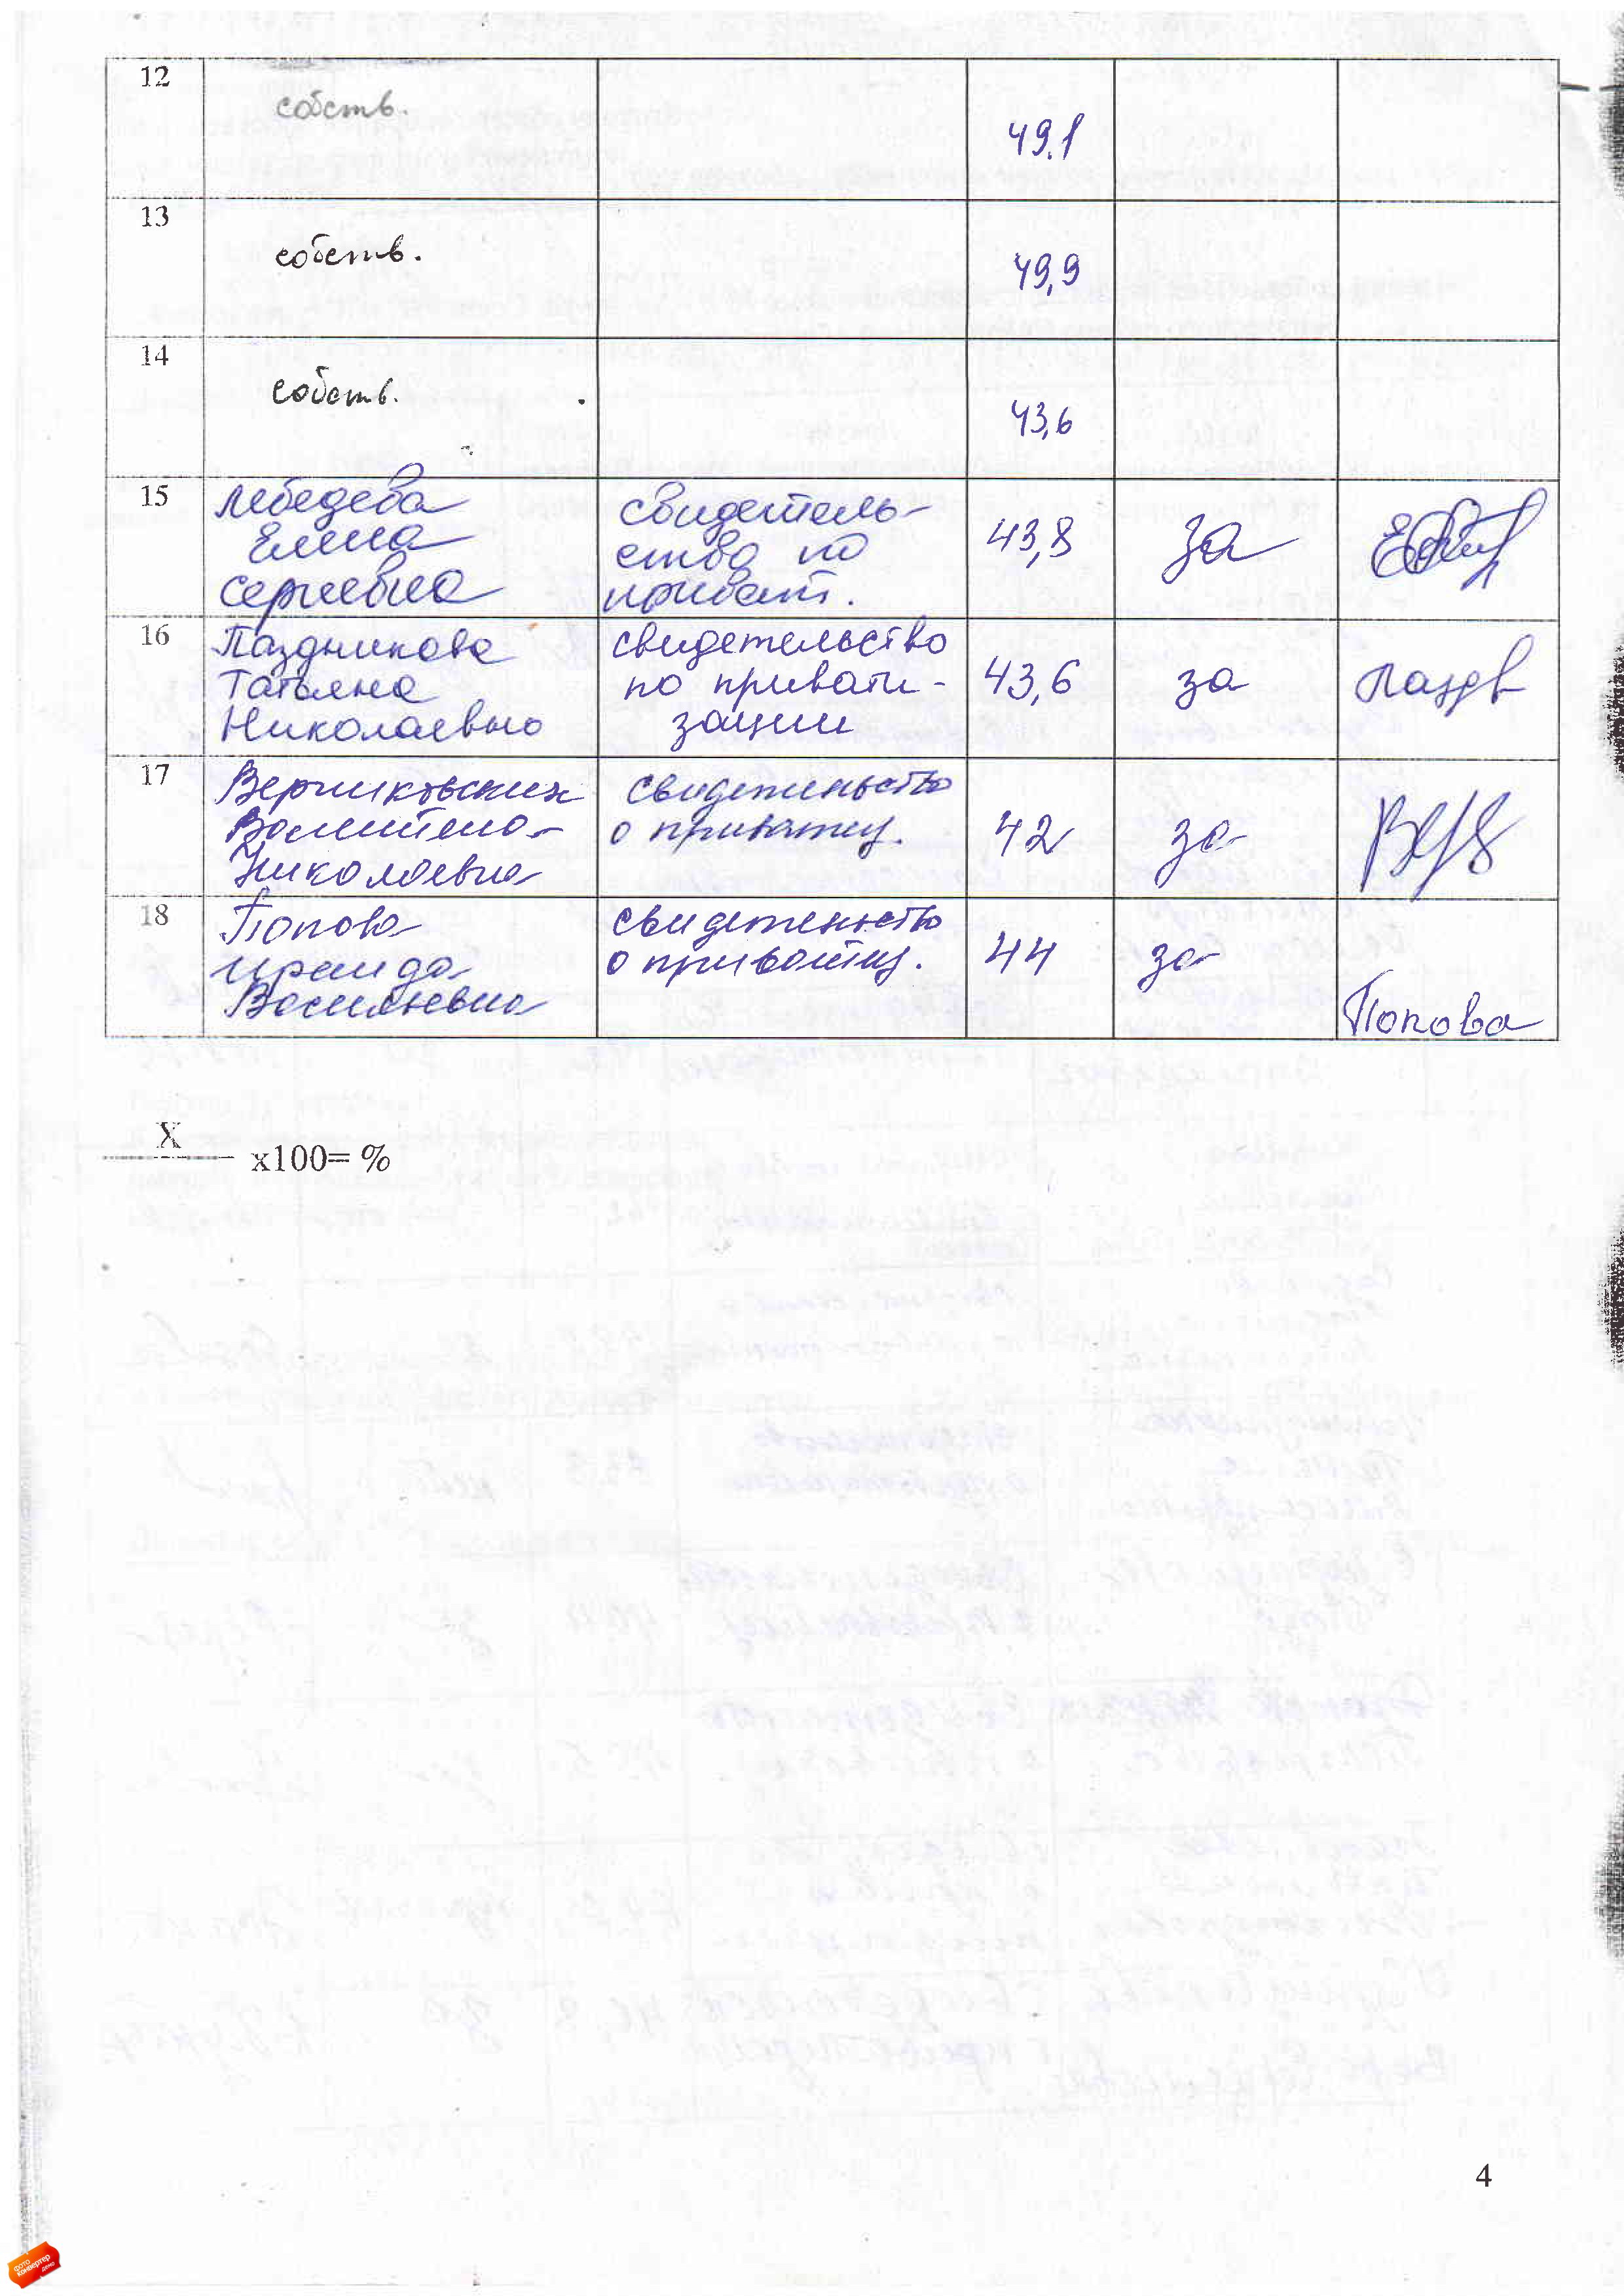 12
собств.
49.1
13
собств.
49,9
14
собств.
43,6
15
Лебедева
Елена
Сергеевна
свидетель-
ство по
приват.
43,8
за
16
Паздникова
Татьяна
Николаевна
свидетельство
по привати-
зации
43,6
за
Паздв
17
Николаевна
свидетельство
о приватиз.
42
за
18
Попова
Ираида
Васильевна
свидетельство
о приватиз.
44
за
Попова
X
x100= %
4
фото
конвертер
демо